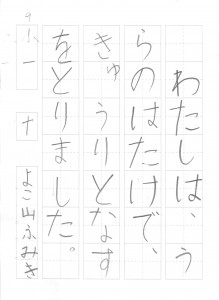 わたしは、う
らのはたけで、
きゅうりとなす
をとりました。
小一 ナ よこ山ふみき